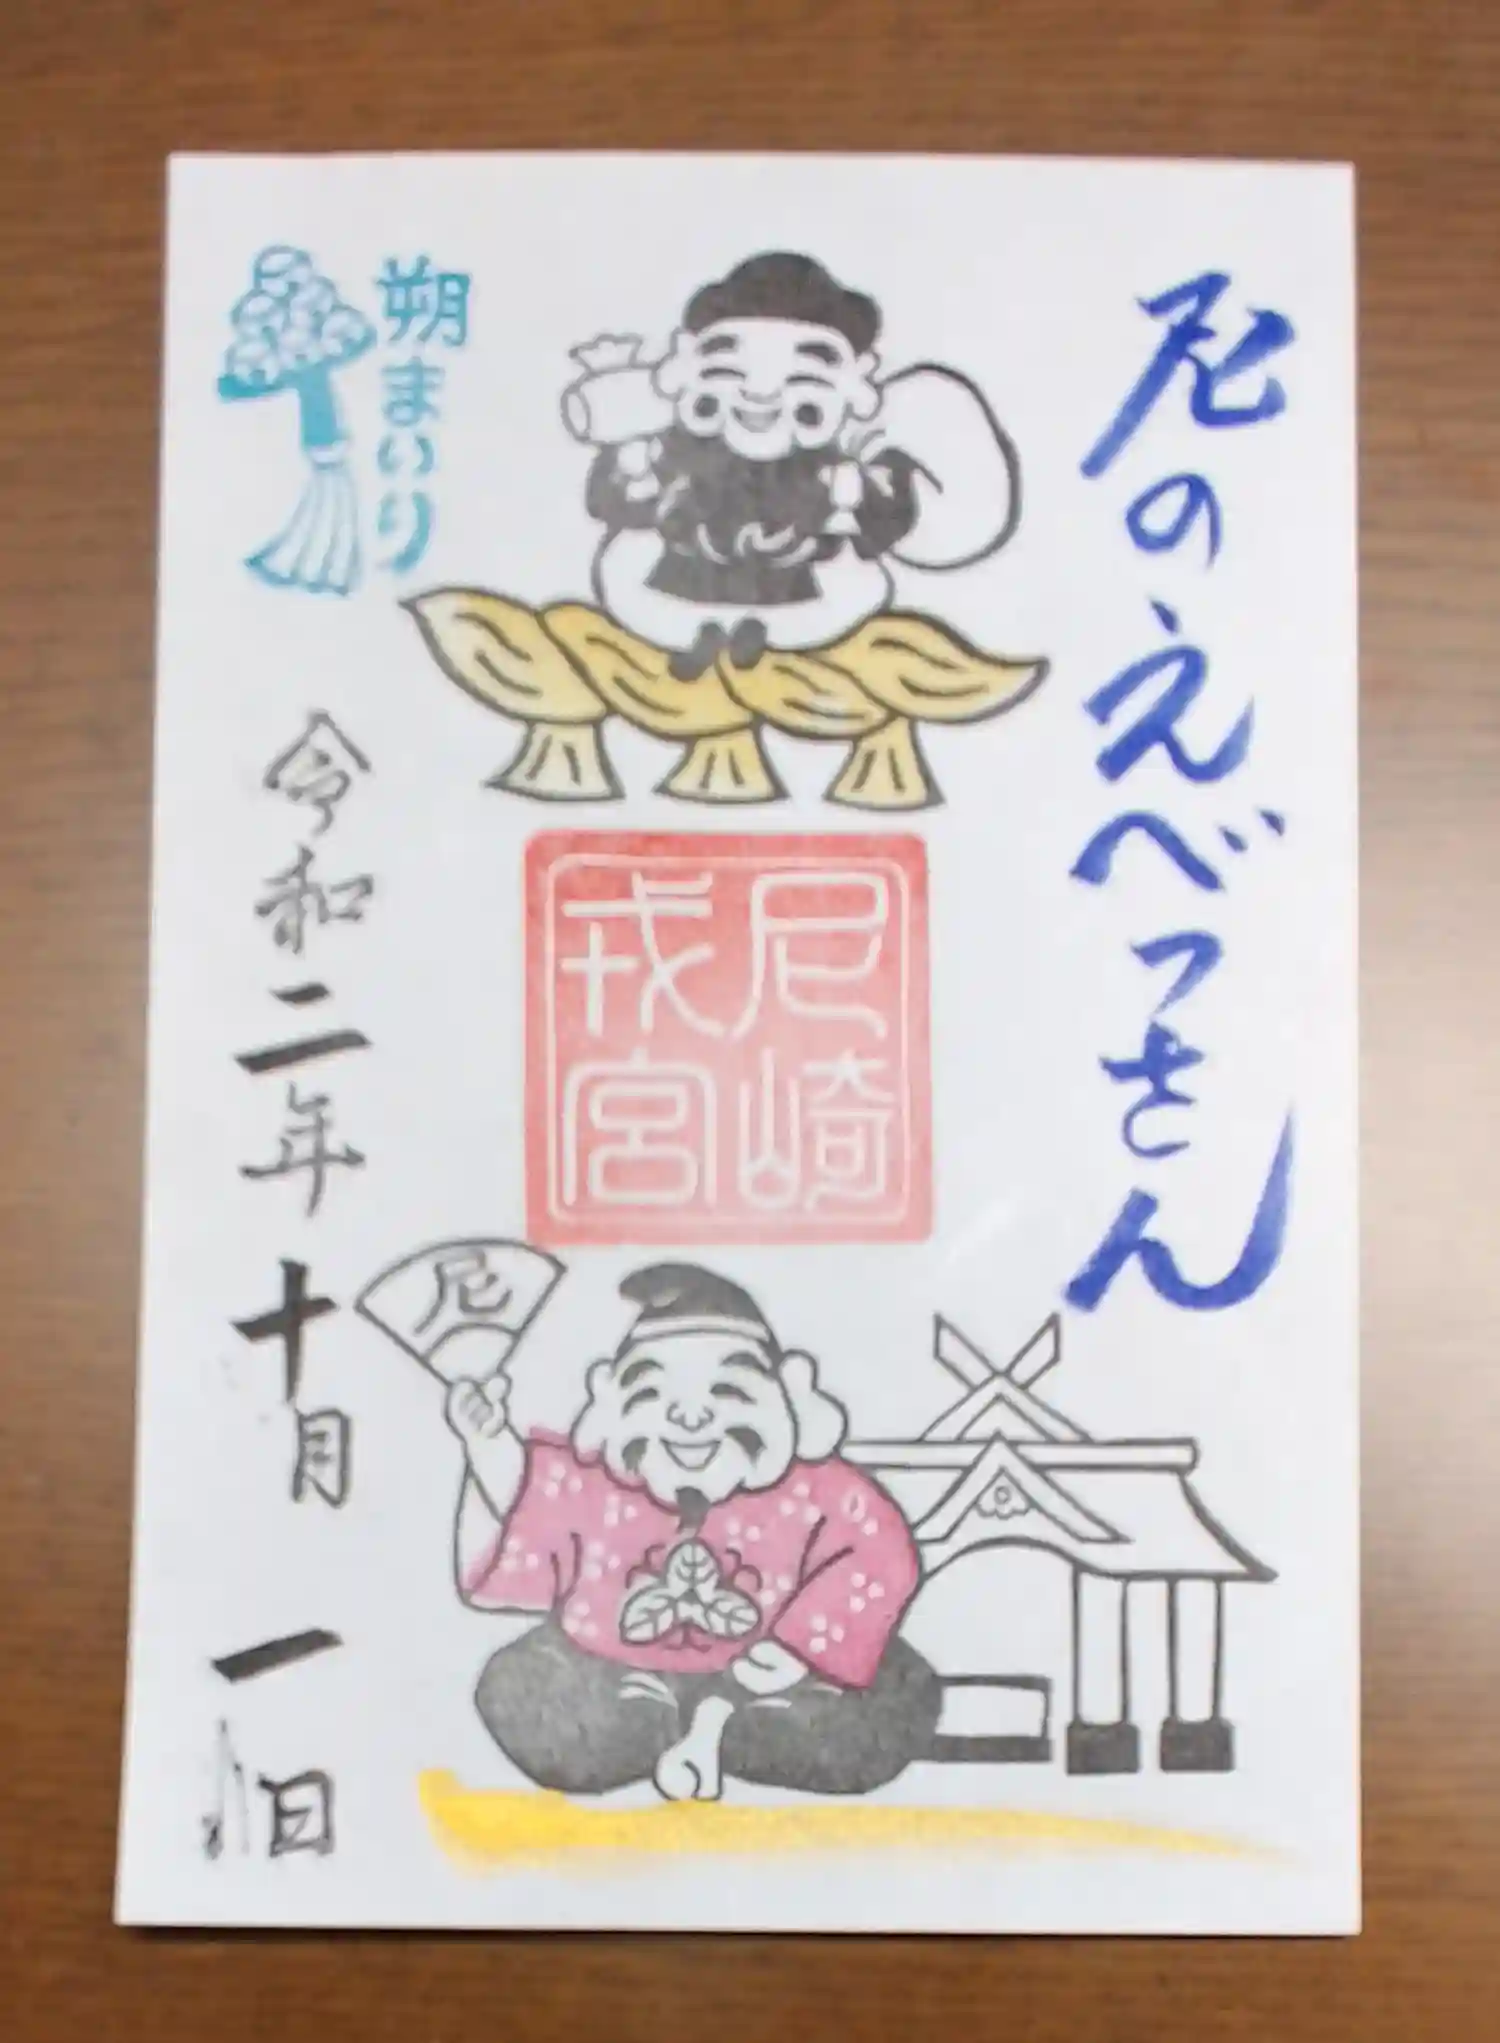 尼のえべっさん
尼崎
戎宮
尼
朔まいり
令和二年十月一日